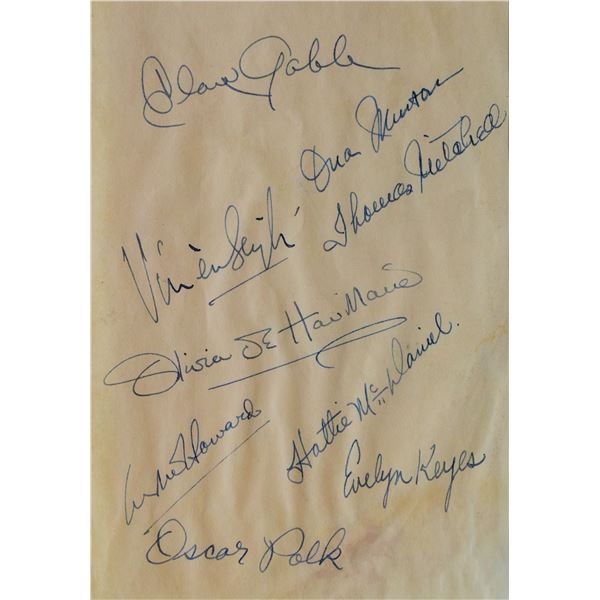 Clark Gable
Ona Munson
Thomas Mitchell
Vivien Leigh
Olivia de Havilland
Leslie Howard
Hattie McDaniel.
Evelyn Keyes
Oscar Polk